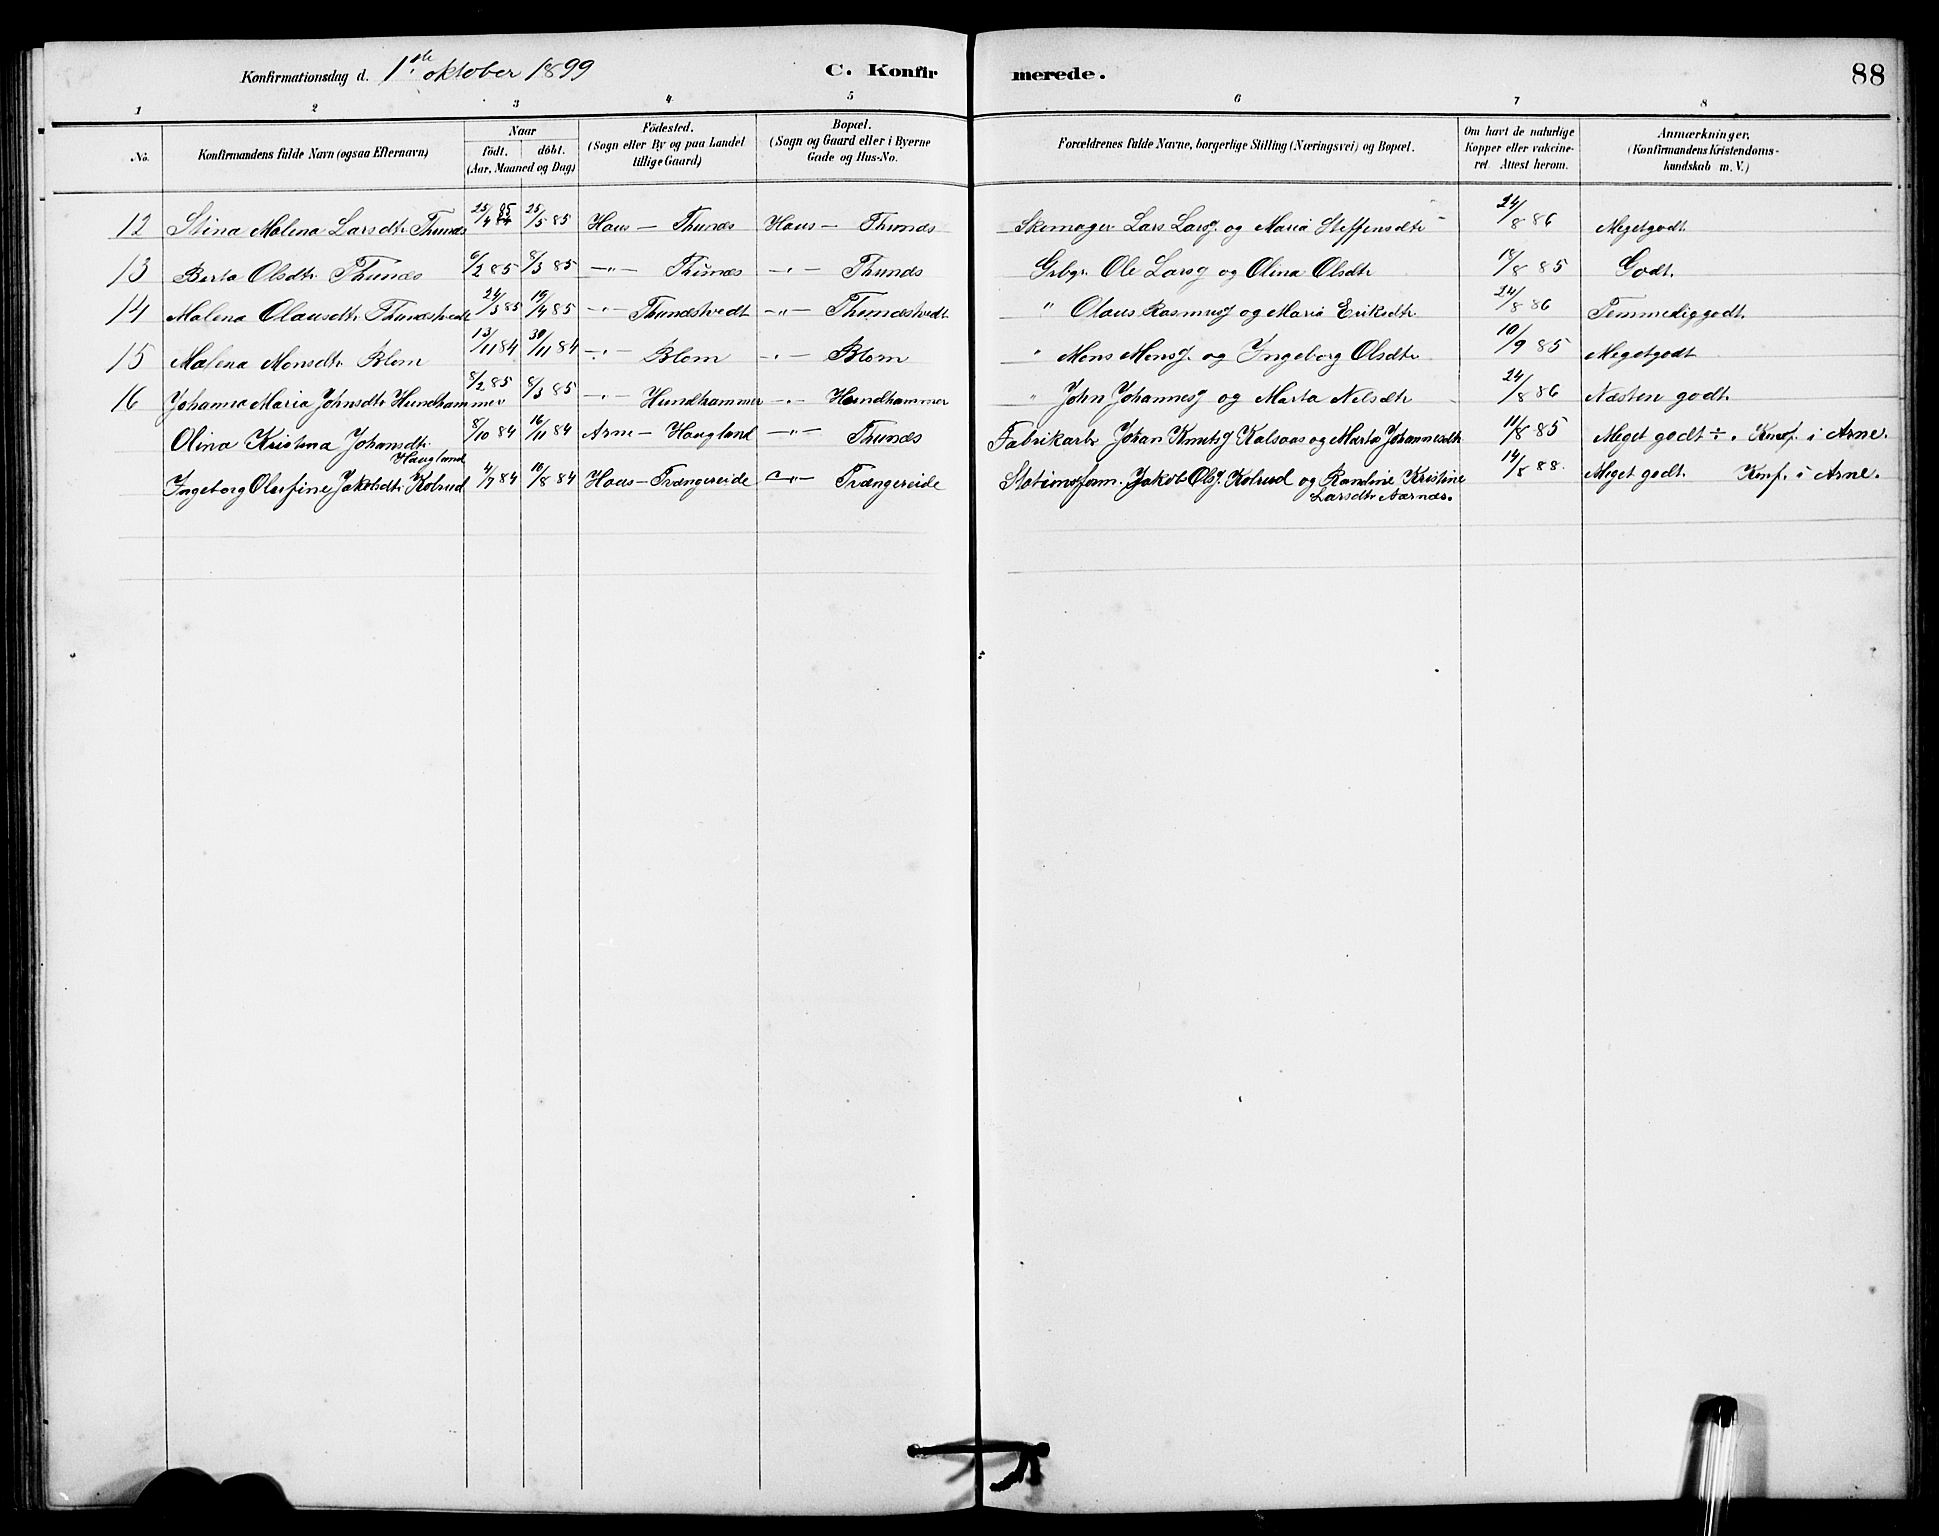 Konfirmationsdag d. 1ste oktober 1899 C. Konfirmerede. 88
1 2 3 4 5 6 7 8
No. Konfirmandens fulde Navn (ogsaa Efternavn) Naar födt. döbt. (Aar, Maaned og Dag) Födested. (Sogn eller By og paa Landet tillige Gaard) Bopæl. (Sogn og Gaard eller i Byerne Gade og Hus-No. Forældrenes fulde Navne, borgerlige Stilling (Næringsvei) og Bopæl. Om havt de naturlige Kopper eller vakcineret. Attest herom. Anmærkninger, (Konfirmandens Kristendomskundskab m. V.)
12 Stina Malena Larsdtr. Thunæs 25/4 85 25/5 85 Haus — Thunæs Haus — Thunæs Skomager Lars Larsg. og Maria Steffensdtr 24/8 86 Megetgodt
13 Berta Olsdtr. Thunæs 6/2 85 8/3 85 —"— Thunæs —"— Thunæs Grbgr. Ole Larsg og Olina Olsdtr 18/8 85 Godt.
14 Malena Olausdtr. Thunæstvedt 24/3 85 19/4 85 —"— Thunæstvedt —"— Thunæstvedt " Olaus Rasmusg og Maria Eriksdtr 24/8 86 Temmeliggodt.
15 Malena Monsdtr. Blom 13/11 84 30/11 84 —"— Blom —"— Blom " Mons Monsg. og Ingeborg Olsdtr 10/9 85 Megetgodt
16 Johanna Maria Johnsdtr Hundhammer 8/2 85 8/3 85 —"— Hundhammer —"— Hundhammer " John Johannesg og Marta Nelsdtr 24/8 86 Næsten godt.
Olina Kristina Johansdtr. Haugland 8/10 84 16/11 84 Arne — Haugland —"— Thunæs Fabrikarb. Johan Knutsg Kalsaas og Marta Johannesdtr 11/8 85 Meget godt ÷. Konf. i Arne.
Ingeborg Olefine Jakobsdtr. Kolrud 4/7 84 10/8 84 Haus — Trængereide —"— Trængereide Stationsform. Jakob Olsg. Kolrud og Randine Kristine Larsdtr Aarnæs. 14/8 88. Meget godt. Konf. i Arne.